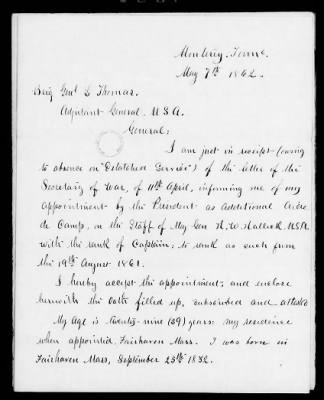 Monterey, Tenn.
May 7th 1862.
Brig Genl L Thomas.
Adjutant General. U.S.A.
General:
I am just in receipt (owing
to absence on "Detatched Service") of the letter of the
Secretary of War, of 11th April, informing me of my
appointment by the President as Additional Aide
de Camp, on the Staff of May Gen H. W. Halleck U.S.A.
with the rank of Captain, to rank as such from
the 19th August 1861.
I hereby accept the appointment, and enclose
herewith the oath filled up, subscribed and attested
My Age is twenty-nine (29) years: my residence
when appointed, Fairhaven Mass. I was born in
Fairhaven Mass, September 25th 1832.